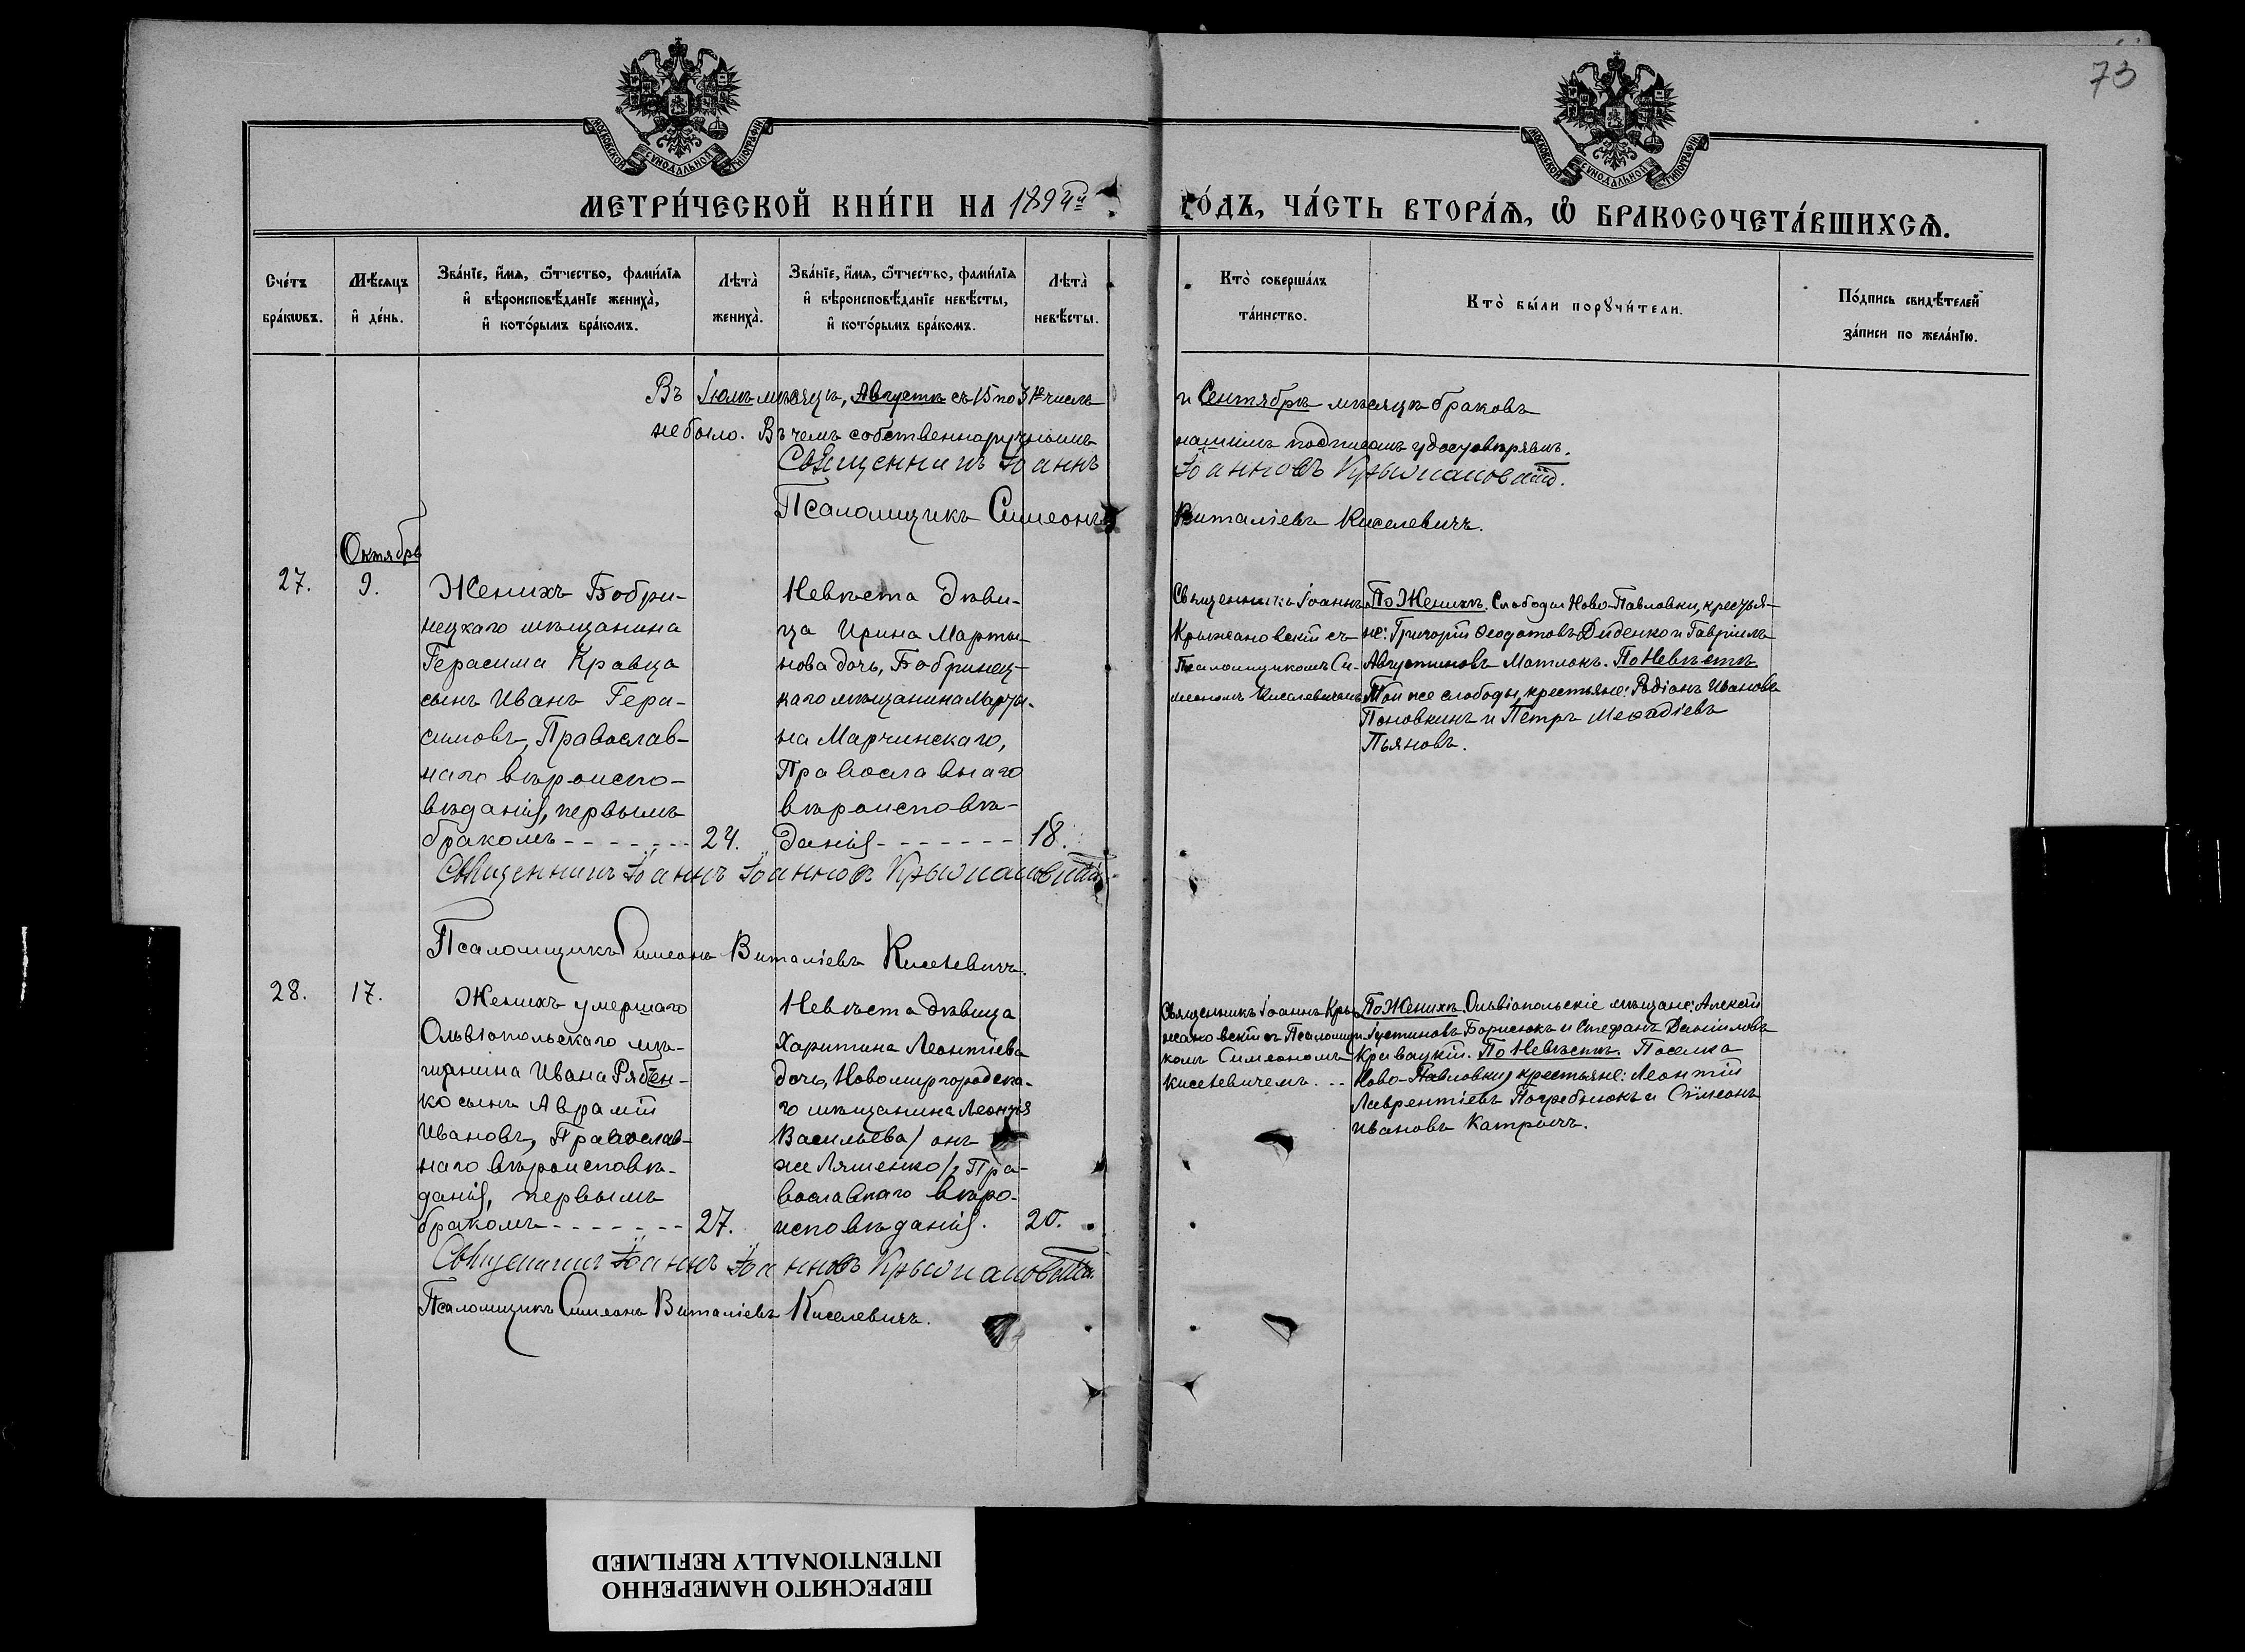 73
МОСКОВСКОЙ СѴНОДАЛЬНОЙ ТИПОГРАФІИ
МОСКОВСКОЙ СѴНОДАЛЬНОЙ ТИПОГРАФІИ
МЕТРИ́ЧЕСКОЙ КНИ́ГИ НА 1894й
ГО́ДЪ, ЧА́СТЬ ВТОРА́Ѧ, Ѽ БРАКОСОЧЕТА́ВШИХСѦ.
Сче́тъ бра́кѡвъ.
Мѣ́сяцъ и҆ де́нь.
Зва́нїе, и҆́мѧ, ѻ҆́тчество, фами́лїѧ и҆ вѣроисповѣ́данїе жениха̀, и҆ кото́рымъ бра́комъ.
Лѣта̀ жениха̀.
Зва́нїе, и҆́мѧ, ѻ҆́тчество, фами́лїѧ и҆ вѣроисповѣ́данїе невѣ́сты, и҆ кото́рымъ бра́комъ.
Лѣта̀ невѣ́сты.
Кто̀ соверша́лъ та́инство.
Кто̀ бы́ли порꙋчи́тели.
По́дпись свидѣ́телей за́писи по жела́нїю.
Въ Іюлѣ мѣсяцѣ, Августѣ съ 15 по 31е число
и Сентябрѣ мѣсяцѣ браковъ
не было. Въ чемъ собственноручнымъ
нашимъ подписомъ удостовѣряемъ.
Священникъ Іоаннъ
Іоанновъ Крыжановскій.
Псаломщикъ Симеонъ
Виталіевъ Киселевичъ.
Октябрь
27.
9.
Женихъ Бобри-
нецкаго мѣщанина
Герасима Кравца
сынъ Иванъ Гера-
симовъ, Православ-
наго вѣроиспо-
вѣданія, первымъ
бракомъ - - - - - - -
24.
Невѣста Дѣви-
ца Ирина Марты-
нова дочь, Бобринец-
каго мѣщанина Марты-
на Марчинскаго,
Православнаго
вѣроисповѣ-
данія - - - - - - -
18.
Священникъ Іоаннъ
Крыжановскій съ
Псаломщикомъ Си-
меономъ Киселевичемъ
По Женихѣ. Слободы Ново-Павловки, крестья-
не: Григорій Ѳеодотовъ Диденко и Гавріилъ
Августиновъ Матлокъ. По Невѣстѣ
Той же слободы, крестьяне: Родіонъ Ивановъ
Поновкинъ и Петръ
Пьяновъ.
Священникъ Іоаннъ Іоанновъ Крыжановскій.
Псаломщикъ Симеонъ Виталіевъ Киселевичъ.
28.
17.
Женихъ умершаго
Ольвіопольскаго мѣ-
щанина Ивана Рябен-
ко сынъ Аврамій
Ивановъ, Православ-
наго вѣроисповѣ-
данія, первымъ
бракомъ - - - - - - -
27.
Невѣста дѣвица
Харитина Леонтіева
дочь, Новомиргородска-
го мѣщанина Леонтія
Васильева/онъ
же Ляшенко/, Пра-
вославнаго вѣро-
исповѣданія.
20.
Священникъ Іоаннъ Кры-
жановскій съ Псаломщи-
комъ Симеономъ
Киселевичемъ. - -
По Женихѣ. Ольвіопольскіе мѣщане: Алексѣй
Іустиновъ Борисюкъ и Стефанъ Даніиловъ
Кривацкій. По Невѣстѣ. Поселка
Ново-Павловки, крестьяне: Леонтій
Лаврентіевъ Погребнюкъ и Симеонъ
Ивановъ Катричъ.
Священникъ Іоаннъ Іоанновъ Крыжановскій.
Псаломщикъ Симеонъ Виталіевъ Киселевичъ.
ПЕРЕСНЯТО НАМЕРЕННО
INTENTIONALLY REFILMED